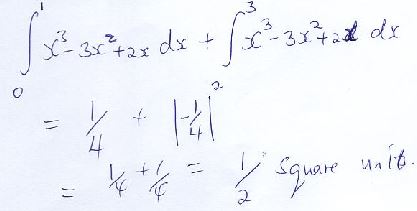 ∫₀¹ x³-3x²+2x dx + ∫₂³ x³-3x²+2x dx
= 1/4 + |-1/4|
= 1/4 + 1/4 = 1/2 square units.